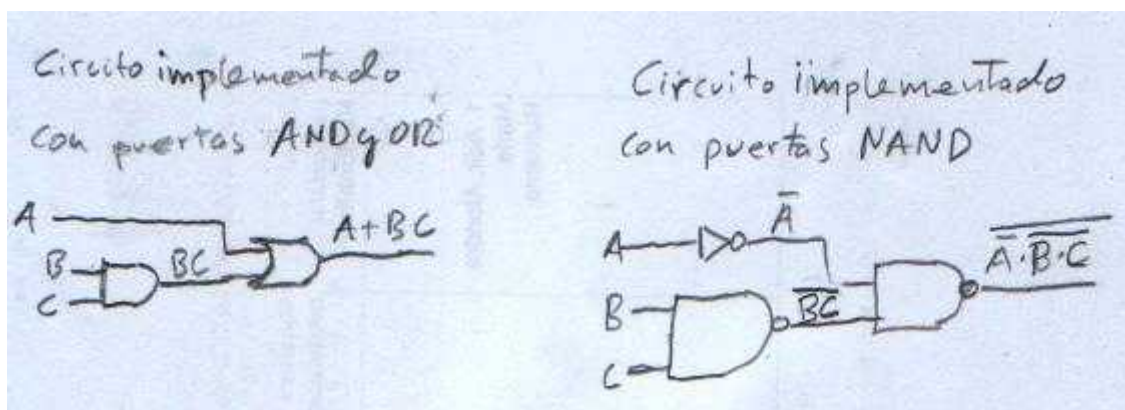 Circuito implementado
con puertas AND y OR
A
B
C
BC
A+BC
Circuito iimplementado
con puertas NAND
A
A̅
B
C
B̅C̅
\overline{\overline{A}·\overline{B·C}}